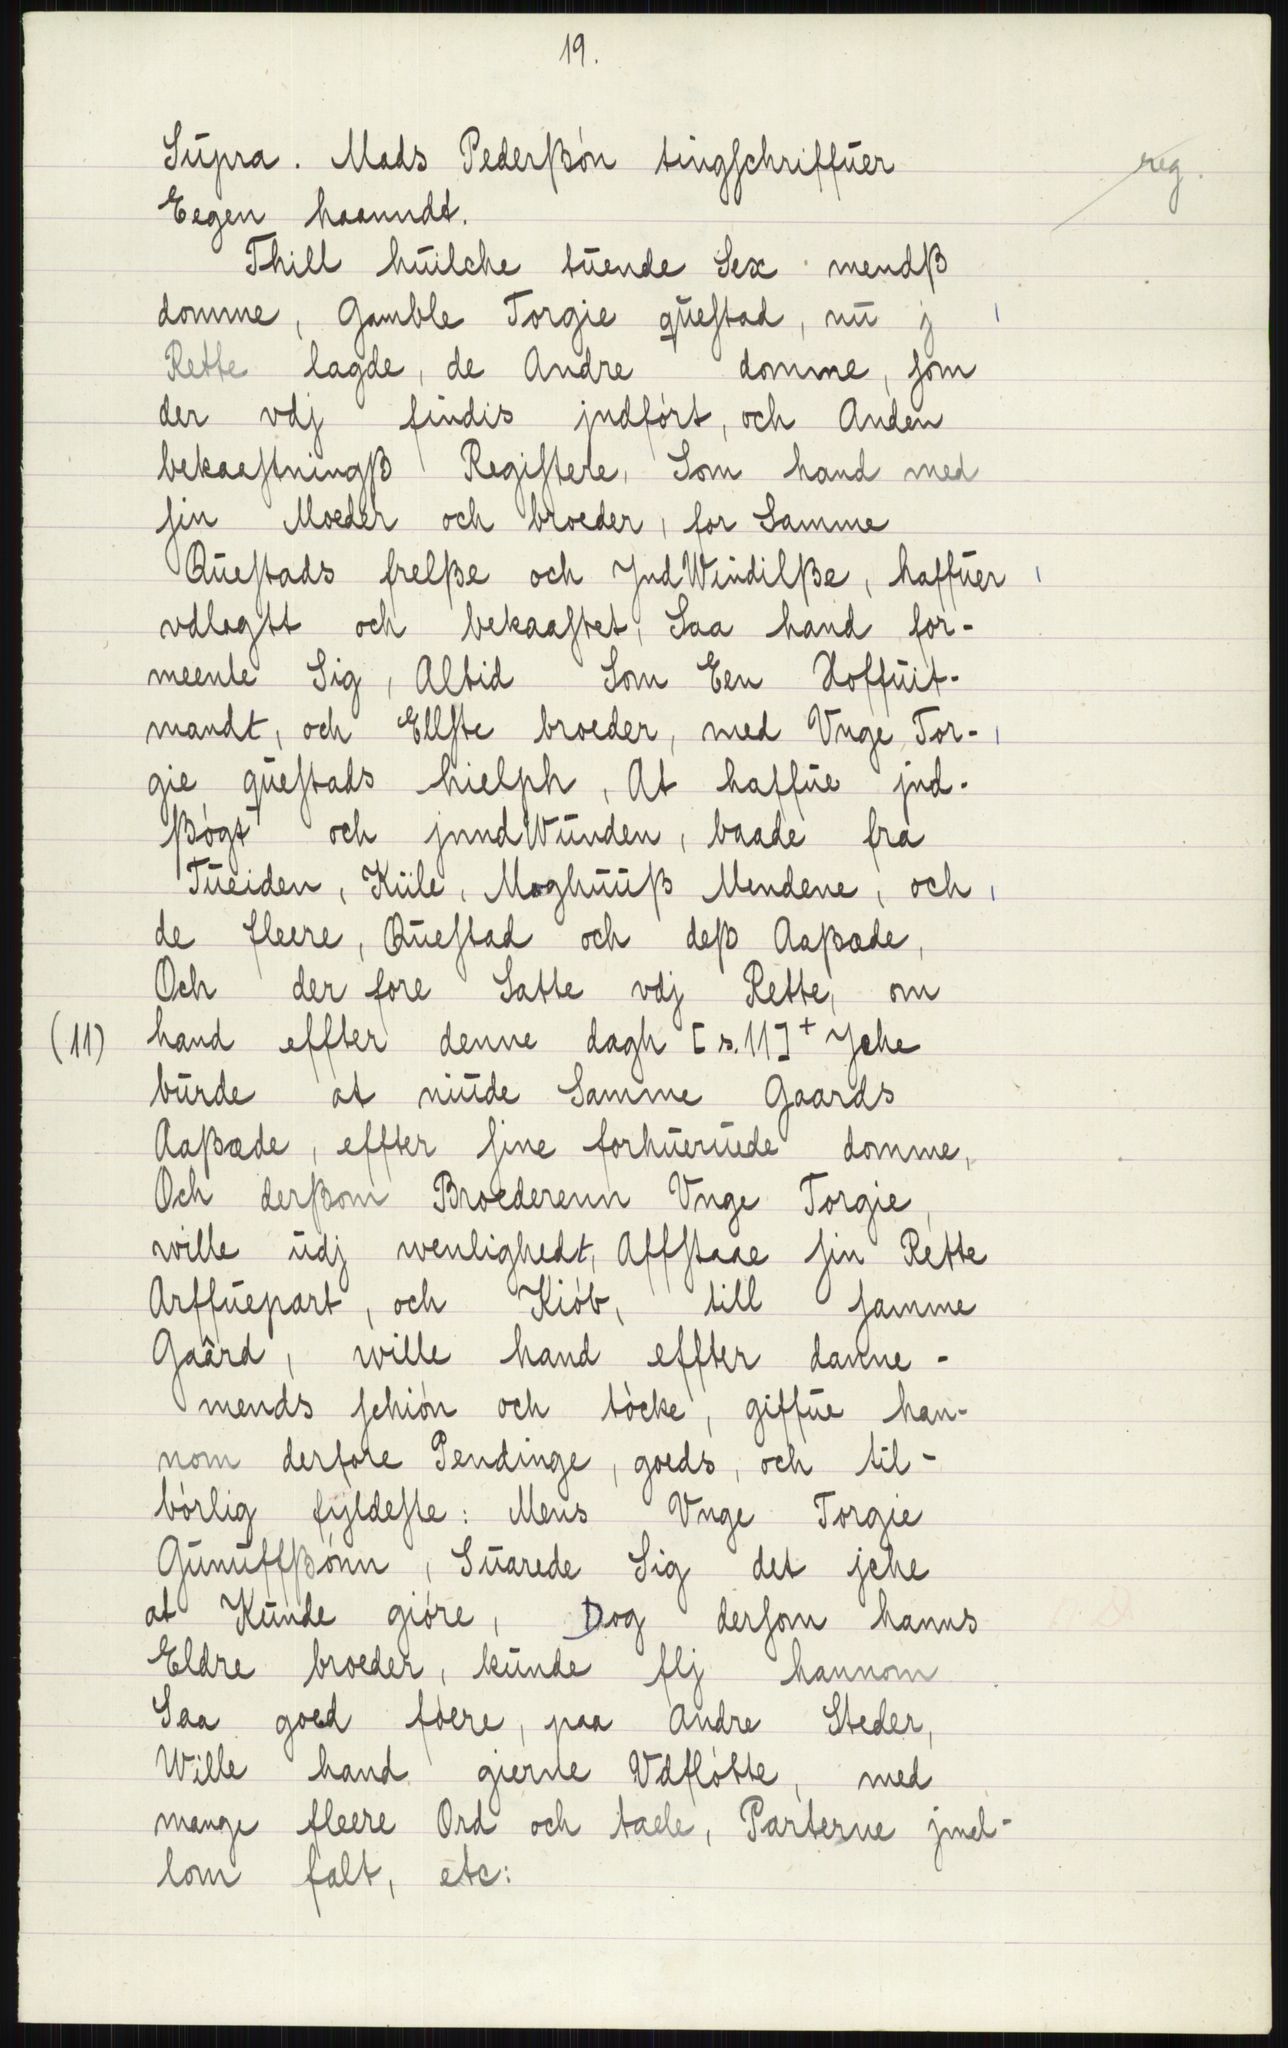 19.
Supra. Mads Pederßøn tingschriffuer
reg.
Eegen haanndt.
Thill huilche tuende Sex mendß
domme, Gamble Torgie questad, nu j
Rette lagde, de Andre domme, som
der vdj findis jndført, och Anden
bekaastningß Registere, Som hand med
sin Moeder och broeder, for Samme
Questads frelße och JndWindilße, haffuer
vdlagtt och bekaastet, Saa hand for-
meente Sig, Altid Som Een Hoffuit-
mandt, och Ellste broeder, med Vnge Tor-
gie questads hielph, At haffue jnd-
ßøgt och jnndWunden, baade fra
Tueiden, Kiile, Moghuuß Mendene, och
de fleere, Questad och deß Aaßæde,
Och der fore Satte vdj Rette, om
(11) hand effter denne dagh [s. 11]+ Jche
burde at niude Samme Gaards
Aaßæde, effter sine forhueruede domme,
Och derßom Broederenn Vnge Torgie,
wille udj wenlighedt, Affstaae sin Rette
Arffuepart, och Kiøb, till samme
Gaård, wille hand effter danne-
mends schiøn och tøcke, giffue han-
nom derfore Pendinge, goeds, och til-
børlig fyldeste: Mens Vnge Torgie
Gunuffßønn, Suarede Sig det jche
at Kunde giøre, Dog dersom hanns
Eldre broeder, kunde flj hannom
Saa goed føere, paa Andre Steder,
Wille hand gierne Vdfløtte, med
mange fleere Ord och taele, Parterne jmel-
lom falt, etc: